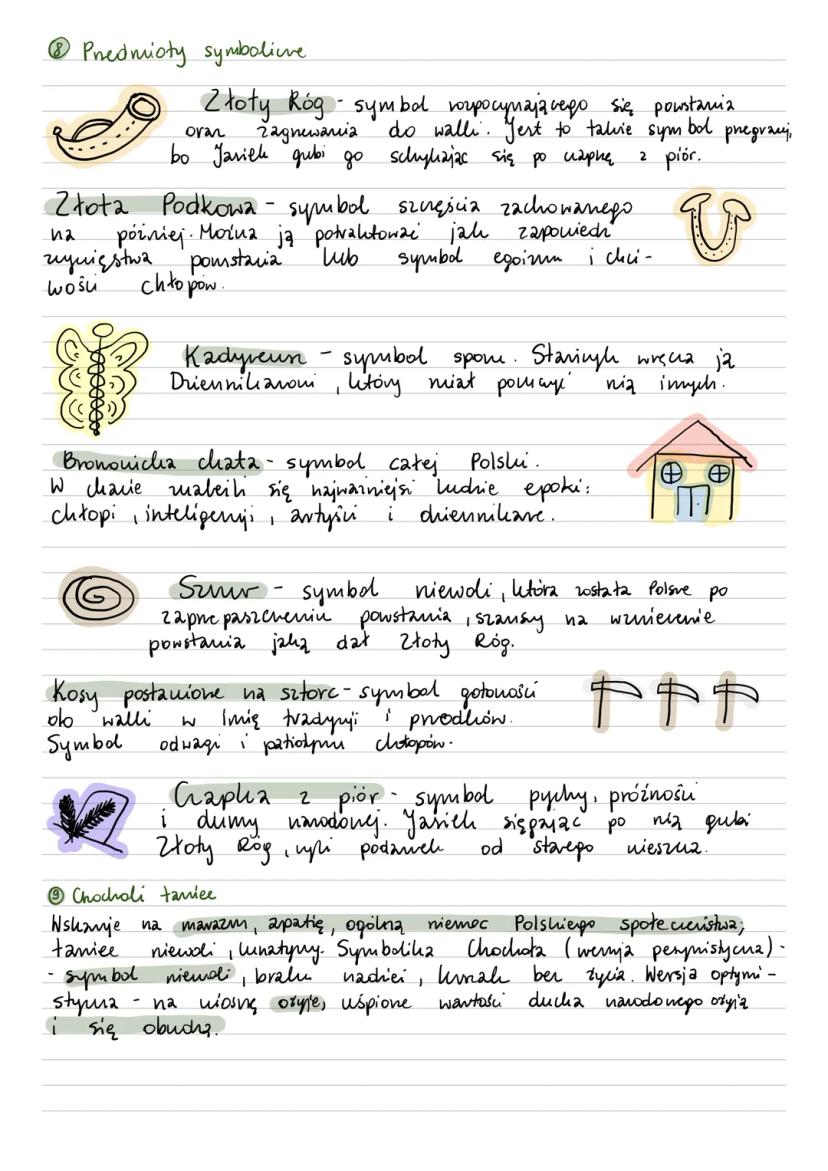 ⑧ Przedmioty symboliczne
Złoty Róg - symbol rozpoczynającego się powstania
oraz zagrzewania do walki. Jest to także symbol przegranej,
bo Jasiek gubi go schylając się po czapkę z piór.
Złota Podkowa - symbol szczęścia zachowanego
na później. Można ją potraktować jak zapowiedź
zwycięstwa powstania lub symbol egoizmu i chci-
wości chłopów.
Kadyceusz - symbol sporu. Stańczyk wręcza ją
Dziennikarzowi, który miał pouczyć nią innych.
Bronowicka chata - symbol całej Polski.
W chacie znaleźli się najważniejsi ludzie epoki:
chłopi, inteligencji, artyści i dziennikarze.
Sznur - symbol niewoli, która została Polsce po
zaprzepaszczeniu powstania, szansy na wzniecenie
powstania jaką dał Złoty Róg.
Kosy postawione na sztorc - symbol gotowości
do walki w imię tradycji i przodków.
Symbol odwagi i patiotyzmu chłopów.
Czapka z piór - symbol pychy, próżności
i dumy narodowej. Jasiek sięgając po nią gubi
Złoty Róg, czyli podarek od starego wieszcza.
⑨ Chocholi taniec
Wskazuje na marazm, apatię, ogólną niemoc Polskiego społeczeństwa;
taniec niewoli, lunatyczny. Symbolika Chochoła (wersja pesymistyczna) -
- symbol niewoli, braku nadziei, kształt bez życia. Wersja optymi-
styczna - na wiosnę ożyje, uśpione wartości ducha narodowego ożyją
i się obudzą.